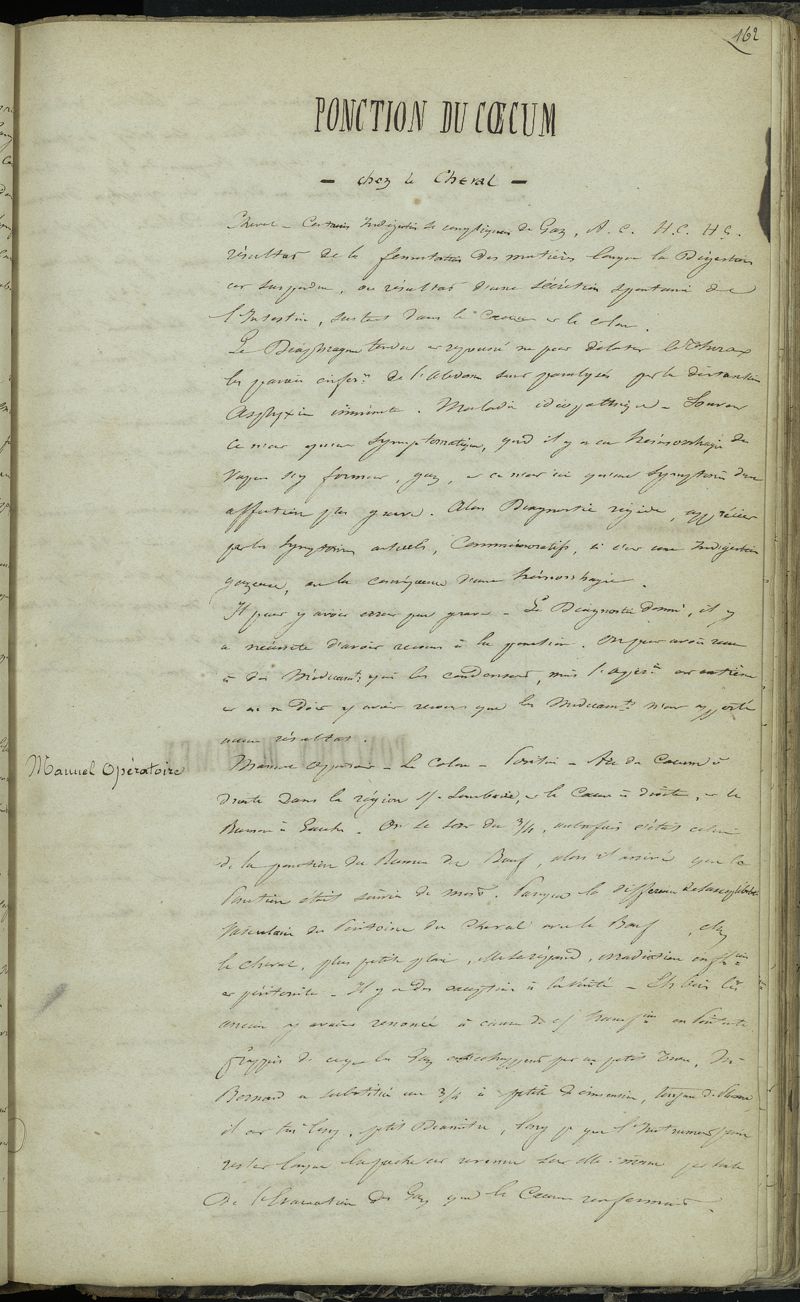 162
PONCTION DU CŒCUM
— chez le Cheval —
Cheval – Certaines Indigestions se compliquent de Gaz, A. C. H.C. H S.
résultat de la fermentation des matières lorsque la Digestion
est suspendue, ou résultat d'une sécrétion spontanée de
l'Intestin, surtout dans le Cœcum et le colon.
Le Diaphragme tendu et repoussé ne peut dilater le Thorax
les parois de l'abdomen sont paralysées par la distension
Asphyxie imminente. Maladie idiopathique – Souvent
ce n'est qu'une symptomatique, qd il y a eu hémorrhagie des
s'y forment, gaz, et ce n'est ici qu'un symptôme d'une
affection plus grave. Alors Diagnostic rigide, apprécier
par les symptômes actuels, Commémoratifs, si c'est une Indigestion
gazeuse, ou la conséquence d'une hémorrhagie.
Il peut y avoir erreur peu grave – Le Diagnostic donné, il y
a nécessité d'avoir recours à la ponction. On peut avoir recours
à des Médicamts qui les condensent, mais l'
et on ne Doit y avoir recours que les Médicamts n'ont apporté
aucun résultat.
Manuel Opératoire
Manuel opératoire – Le Colon – Ponction – Arc du Cœcum à
droite dans la région s/-Lombaire, et le Cœcum à droite, et le
Rumen à Gauche. On se sert du 3/4, autrefois c'était celui
de la ponction du Rumen du Bœuf, alors il arrivait que la
Ponction était suivie de mort. Parce que la différence de la
vasculaire du Péritoine du Cheval avec le Bœuf, chez
le cheval, plus petite plaie, elle se répand, irradiation
et péritonite – Il y a des exceptions à la vérité – Eh bien les
anciens y avaient renoncé à cause de
frappés de ce que les Gaz s'échappent par un petit trou, Mr
Bernard a substitué un 3/4 à petite dimension, longueur de
il est très long, petit Diamètre, long pr que l'Instrument puisse
rester lorsque la poche est revenue sur elle-même par suite
De l'Evacuation des Gaz que le Cœcum renfermait.